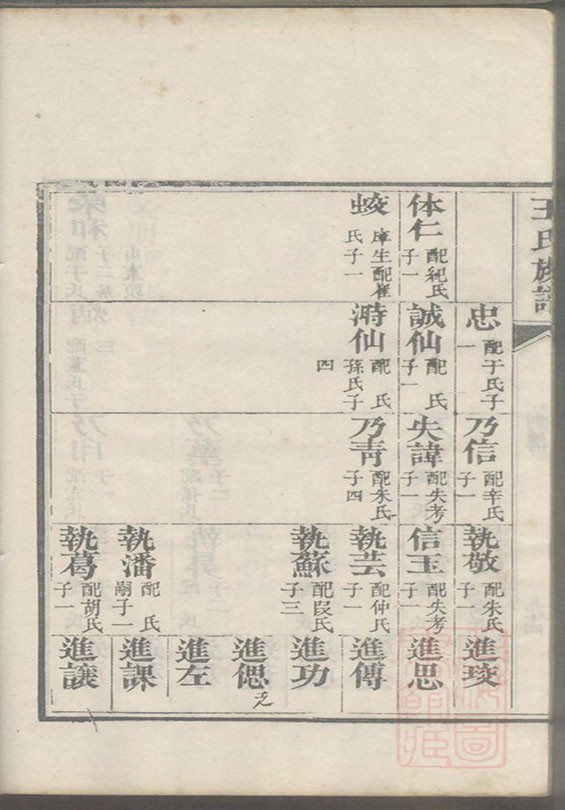 王氏族譜
体仁 配紀氏子一
蛟 庠生配崔氏子一
忠 配于氏子一
誠仙 配 氏子一
時仙 配 氏孫氏子四
乃信 配辛氏子一
失諱 配失考子一
乃靑 配朱氏子四
執敬 配朱氏子一
信玉 配失考子一
執芸 配仲氏子一
執蘇 配段氏子三
執潘 配 氏嗣子一
執葛 配胡氏子一
進琰
進思
進傳
進功
進偲
進左
進課
進讓